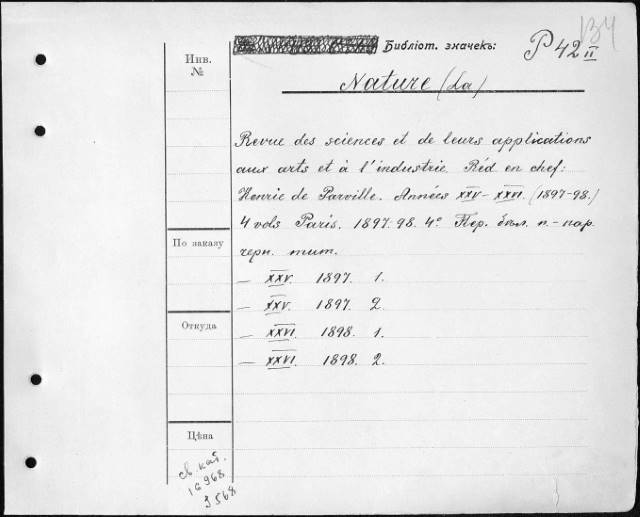 Библіот. значекъ: P 42 II
134
Nature (La)
Инв.
№
Revue des sciences et de leurs applications
aux arts et à l'industrie. Réd en chef:
Henrie de Parville. Années XXV-XXVI. (1897-98.)
4 vols Paris. 1897.98. 4° Пер. бѣл. п.-пар
черн. тит.
По заказу
— XXV. 1897. 1.
— XXV. 1897. 2.
Откуда
— XXVI. 1898. 1.
— XXVI. 1898. 2.
Цѣна
св. кат.
16968